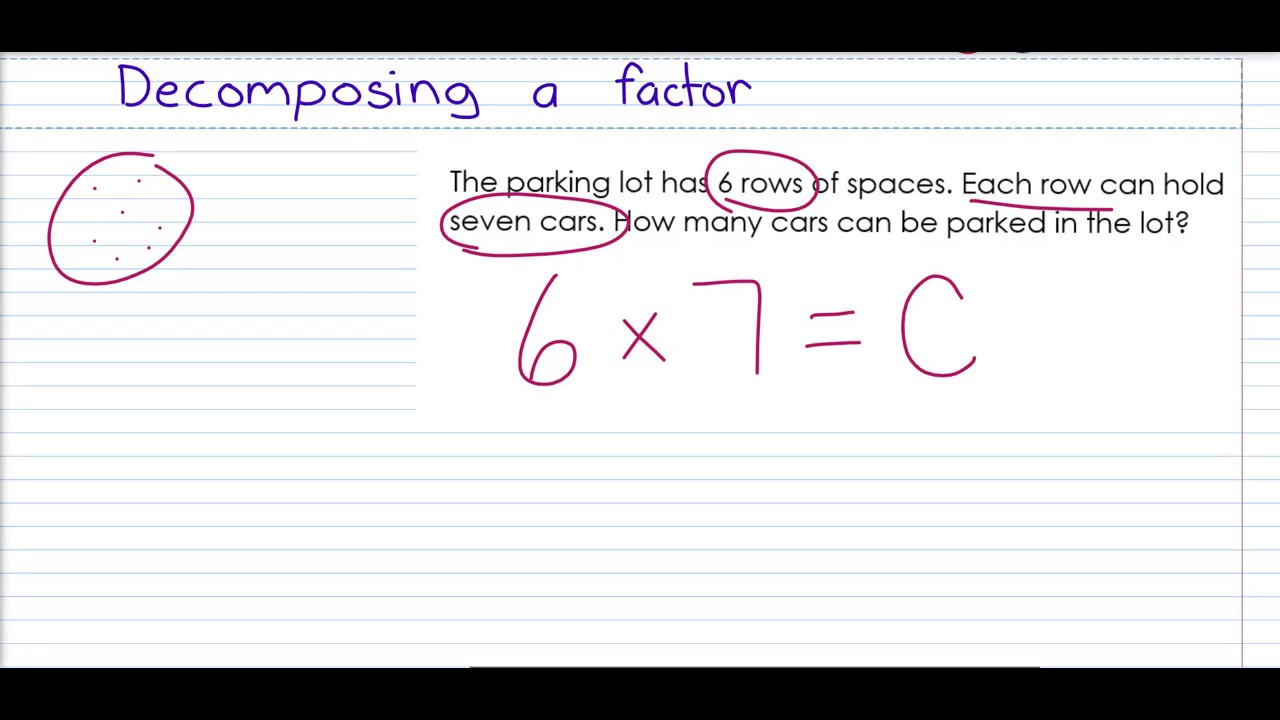 Decomposing a factor
The parking lot has 6 rows of spaces. Each row can hold
seven cars. How many cars can be parked in the lot?
6 x 7 = C